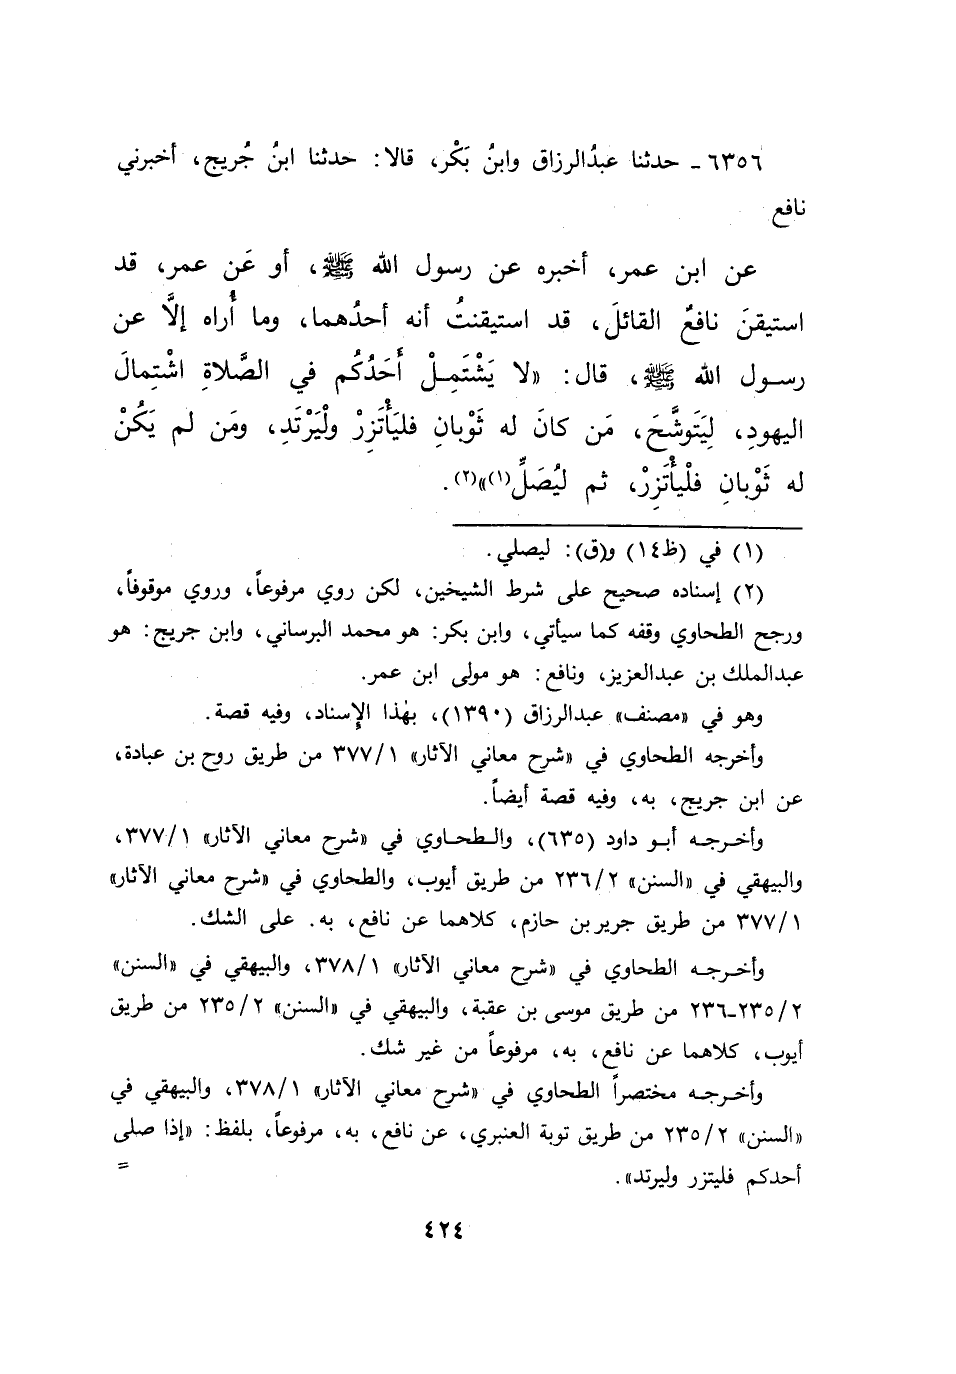 ٦٣٥٦ - حدثنا عبدُالرزاق وابنُ بَكْر، قالا: حدثنا ابنُ جُريج، أخبرني
نافع
عن ابن عمر، أخبره عن رسول الله ﷺ، أو عَن عمر، قد
استيقنَ نافعٌ القائلَ، قد استيقنتُ أنه أحدُهما، وما أُراه إلَّا عن
رسول الله ﷺ، قال: «لا يَشْتَمِلْ أَحَدُكُم في الصَّلاةِ اشْتِمالَ
اليهودِ، لِيَتَوشَّحَ، مَن كانَ له ثَوْبانِ فليَأْتَزِرْ ولْيَرْتَدِ، ومَن لم يَكُنْ
له ثَوْبانِ فلْيأْتَزِرْ، ثم ليُصَلِّ(١)»(٢).
(١) في (ظ١٤) و(ق): ليصلي.
(٢) إسناده صحيح على شرط الشيخين، لكن روي مرفوعاً، وروي موقوفاً،
ورجح الطحاوي وقفه كما سيأتي، وابن بكر: هو محمد البرساني، وابن جريج: هو
عبدالملك بن عبدالعزيز، ونافع: هو مولى ابن عمر.
وهو في «مصنف» عبدالرزاق (١٣٩٠)، بهٰذا الإسناد، وفيه قصة.
وأخرجه الطحاوي في «شرح معاني الآثار» ٣٧٧/١ من طريق روح بن عبادة،
عن ابن جريج، به، وفيه قصة أيضاً.
وأخرجه أبو داود (٦٣٥)، والطحاوي في «شرح معاني الآثار» ٣٧٧/١،
والبيهقي في «السنن» ٢٣٦/٢ من طريق أيوب، والطحاوي في «شرح معاني الآثار»
٣٧٧/١ من طريق جرير بن حازم، كلاهما عن نافع، به. على الشك.
وأخرجه الطحاوي في «شرح معاني الآثار» ٣٧٨/١، والبيهقي في «السنن»
٢٣٥/٢-٢٣٦ من طريق موسى بن عقبة، والبيهقي في «السنن» ٢٣٥/٢ من طريق
أيوب، كلاهما عن نافع، به، مرفوعاً من غير شك.
وأخرجه مختصراً الطحاوي في «شرح معاني الآثار» ٣٧٨/١، والبيهقي في
«السنن» ٢٣٥/٢ من طريق توبة العنبري، عن نافع، به، مرفوعاً، بلفظ: «إذا صلى
أحدكم فليتزر وليرتد». =
٤٢٤